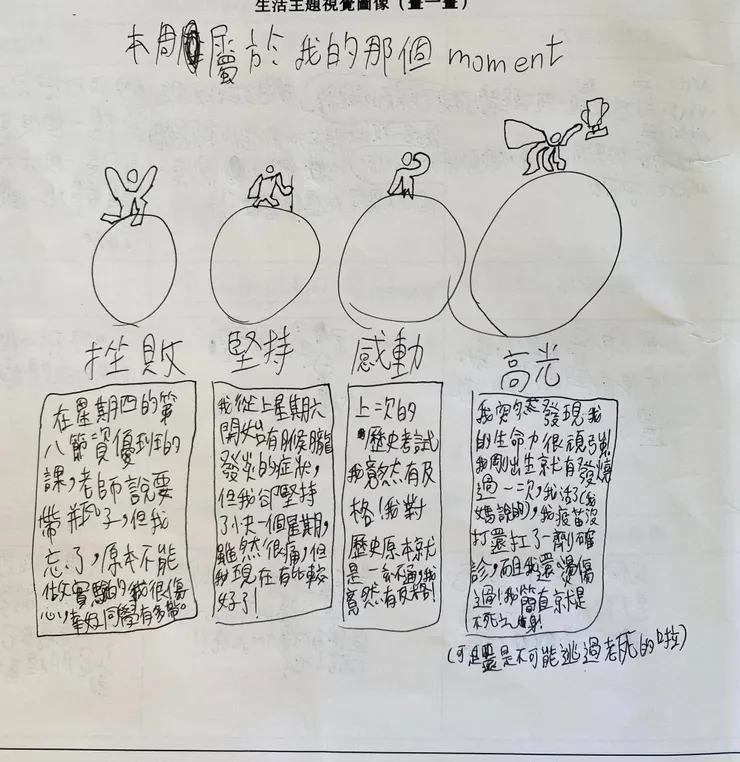 生活主題視覺圖像（畫一畫）
本周屬於我的那個 moment
挫敗
在星期四的第
八節資優班的
課，老師說要
帶瓶子，但我
忘了，原本不能
做實驗的我很傷
心，幸好同學有多帶。
堅持
我從上星期六
開始有喉嚨
發炎的症狀，
但我卻堅持
了小夫一個星期，
雖然很痛，但
我現在有比較
好了！
感動
上次的
歷史考試
我竟然有及
格！我對
歷史原本就
是一竅不通，我
竟然有及格！
高光
我突然發現我
的生命力很頑強！
我剛出生就有發燒
過一次，我活了（我
媽說的），我疫苗沒
打還扛了一劑確
診，而且我還燙傷
過！我簡直就是
不死之身！
（可是還是不可能逃過老死的啦）